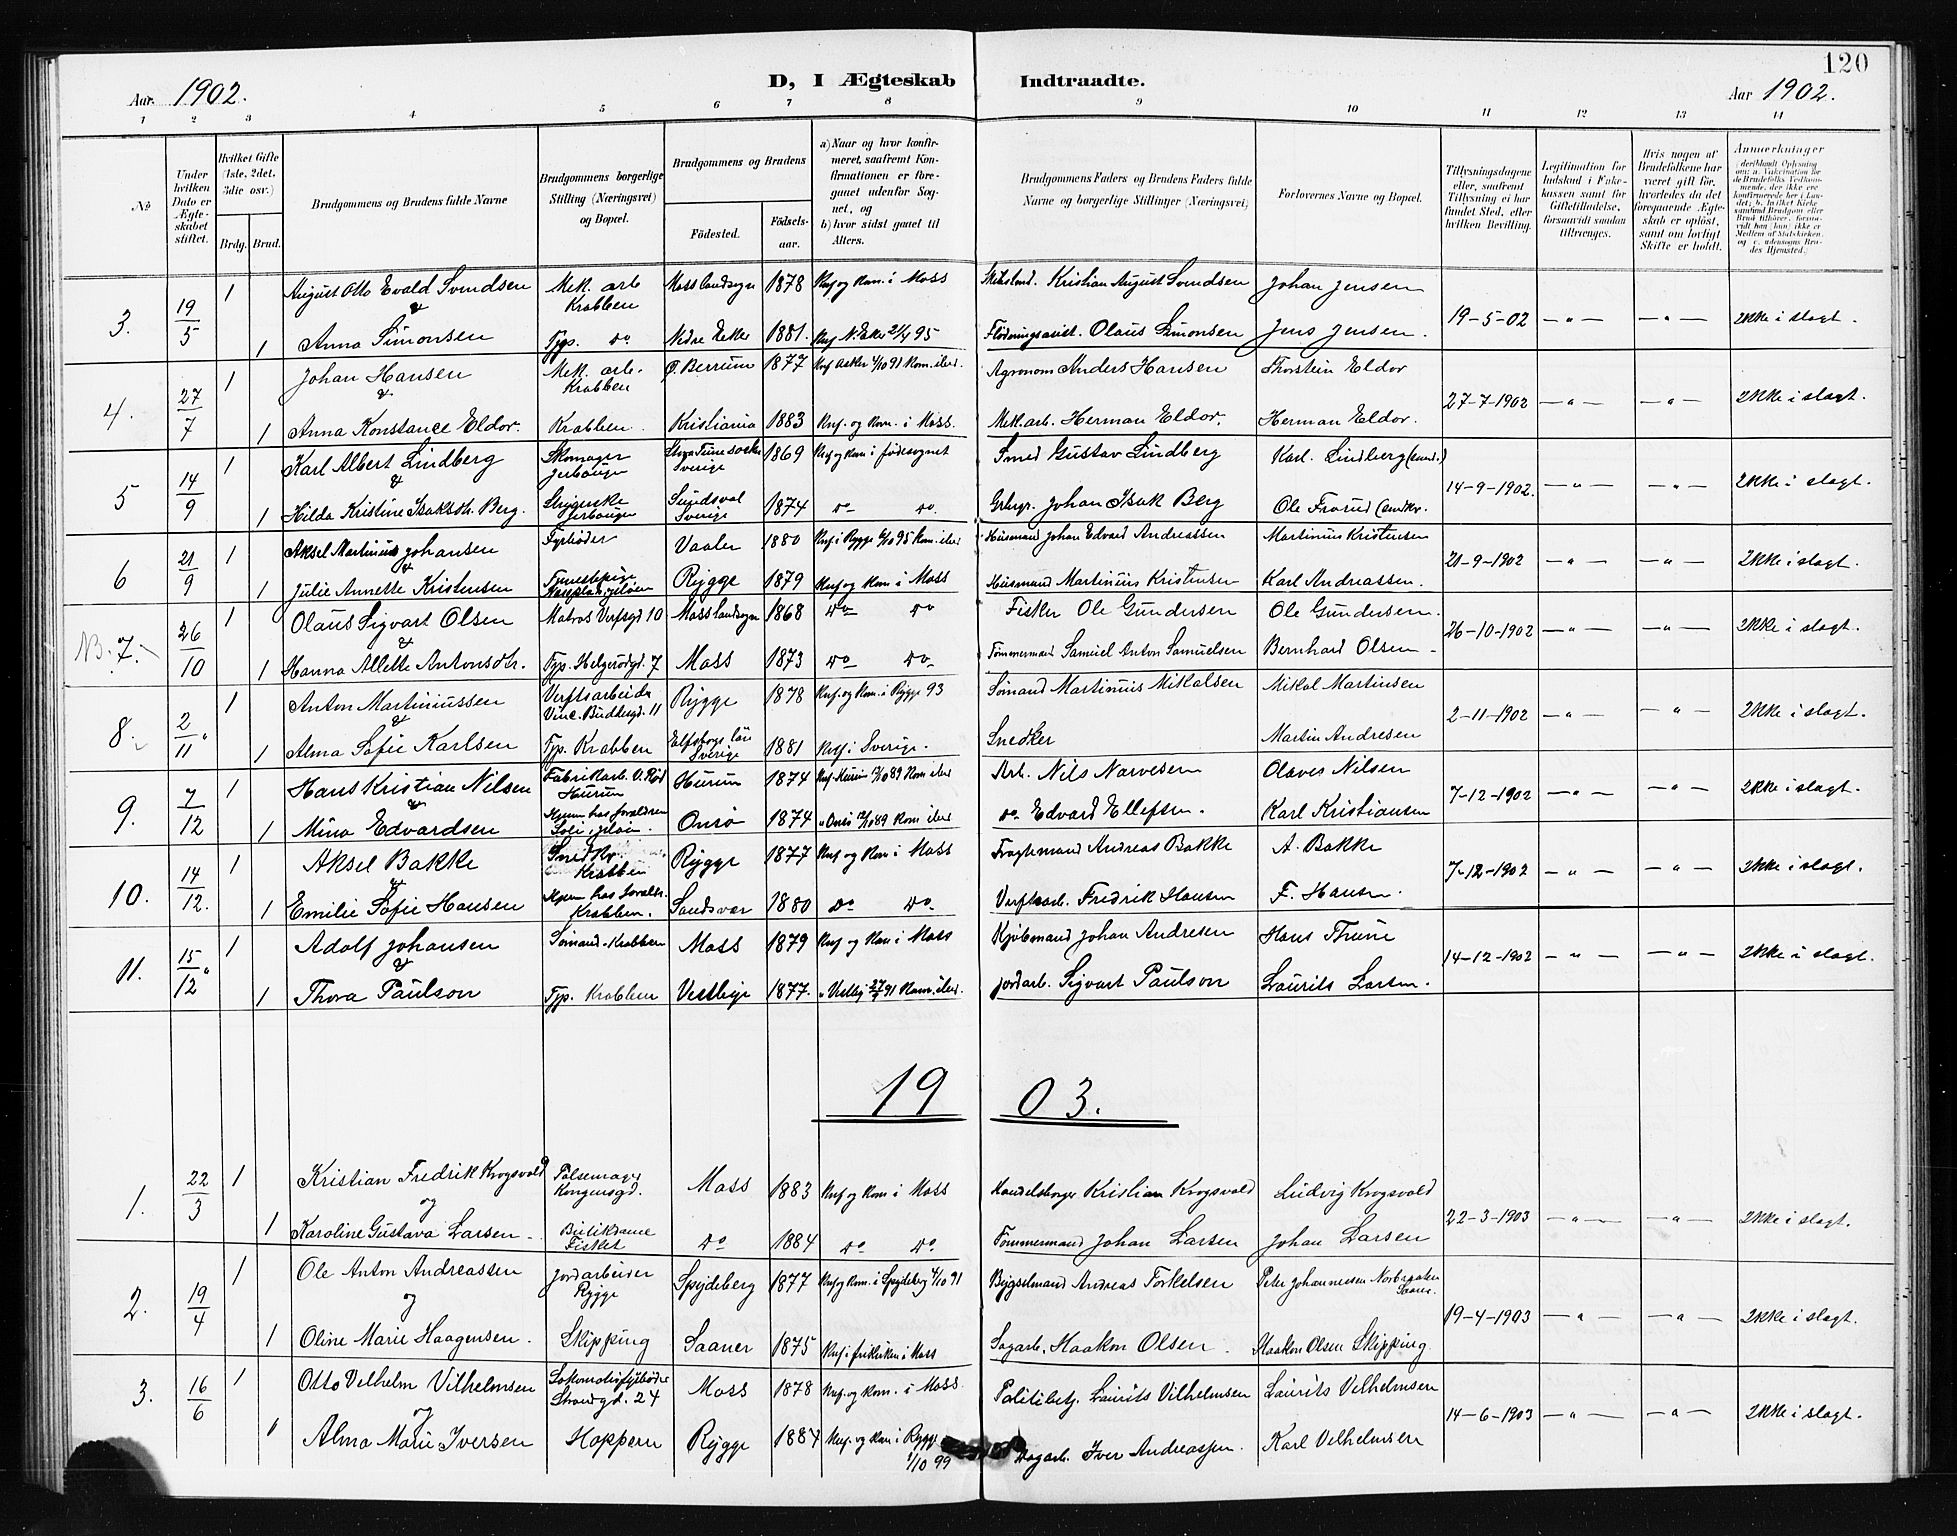 120
Aar. 1902.
D, I Ægteskab Indtraadte.
Aar 1902.
1 2 3 4 5 6 7 8 9 10 11 12 13 14
No
Under hvilken Dato er Ægteskabet stiftet.
Hvilket Gifte (1ste, 2det, 3die osv.)
Brdg. Brud.
Brudgommens og Brudens fulde Navne
Brudgommens borgerlige Stilling (Næringsvei) og Bopæl.
Brudgommens og Brudens
Födested. Födselsaar.
a) Naar og hvor konfirmeret, saafremt Konfirmationen er foregaaet udenfor Sognet, og
b) hvor sidst gaaet til Alters.
Brudgommens Faders og Brudens Faders fulde Navne og borgerlige Stillinger (Næringsvei)
Forlovernes Navne og Bopæl.
Tillysningsdagene eller, saafremt Tillysning ei har fundet Sted, efter hvilken Bevilling.
Legitimation for Indskud i Enkekassen samt for Giftetilladelse, forsaavidt saadan tiltrænges.
Hvis nogen af Brudefolkene har været gift för, hvorledes da det foregaaende Ægteskab er oplöst, samt om lovligt Skifte er holdt.
Anmærkninger
3. 19/5 1 August Otto Evald Svendsen Mek. arb Krabben Moss landsogn 1878 Knf og Kom. i Moss Kristian August Svendsen Johan Jensen
& 19-5-02 —"— —"— ikke i slægt.
1 Anna Simonsen Typ. do Nedre Eker 1881. Knf N. Eker 21/4 95 Flödningsasist. Olaus Simonsen Jens Jensen.
4. 27/7 1 Johan Hansen Mek. arb. Krabben Ø. Berrum 1877 Knf Asker 4/10 91 Kom. ibid. Agronom Anders Hansen Thorstein Eldor
& 27-7-1902 —"— —"— ikke i slægt.
1 Anna Konstance Eldor. Krabben. Kristiania 1883 Knf. og Kom. i Moss. Mek. arb. Herman Eldor. Herman Eldor.
5 14/9 1 Karl Albert Lindberg Skomager Sverige 1869 Knf og Kom i födesognet Smed Gustav Lindberg Karl Lindberg
& 14-9-1902. —"— —"— ikke i slægt.
1 Hilda Kristine Isaksdtr. Berg. Sundsval Sverige 1874 do do. Johan Isak Berg Ole Frorud
6 21/9 1 Aksel Martinius Johansen Fyrböder Vaaler 1880 Knf i Rygge 6/10 95 Kom. ibid Husmand Johan Edvard Andreassen Martinius Kristensen
& 21-9-1902 —"— —"— ikke i slægt.
1 Julie Annette Kristensen Tjenestepige Rygge 1879 Knf og Kom i Moss Husmand Martinius Kristensen Karl Andreassen.
N. 7. 26/10 1 Olaus Sigvart Olsen Matros Verfsgd 10 Moss landsogn 1868 do do Fisker Ole Gundersen Ole Gundersen.
& 26-10-1902 —"— —"— ikke i slægt.
1 Hanna Alette Antonsdtr. Typ. Helgerödgd. 7 Moss 1873 do do Tömmermand Samuel Anton Samuelsen Bernhard Olsen
8. 2/11 1 Anton Martiniussen Verftsarbeider Vinc. Buddesgd. 11 Rygge 1878 Knf. og Kom. i Rygge 93 Sömand Martinius Mikalsen Mikal Martinsen
& 2-11-1902 —"— —"— ikke i slægt.
1 Alma Sofie Karlsen Typ. Krabben Elfsborgs län Sverige 1881 Knf i Sverige. Snedker Martin Andresen
9. 7/12 1 Hans Kristian Nilsen Fabrikarb. V. Röd Hurum Hurum 1874 Knf Hurum 89 Kom ibid Arb. Nils Narvesen Olaves Nilsen
& 7-12-1902 —"— —"— ikke i slægt.
1 Mina Edvardsen Hjem. hos foraldren Jelöen. Onsö 1874 " Onsö 89 Kom ibid do. Edvard Ellefsen. Karl Kristiansen
10. 14/12. 1 Aksel Bakke Snedkr. Krabben Rygge 1877 Knf og Kom i Moss Fragtemand Andreas Bakke A. Bakke
& 7-12-1902 —"— —"— ikke i slægt.
1 Emilie Sofie Hansen Hjem. hos foraldr. Krabben. Sandsvær 1880 do do. Verftsarb. Fredrik Hansen F. Hansen.
11. 15/12 1 Adolf Johansen Sömand. Krabben Moss 1879 Knf og Kom i Moss Kjöbmand Johan Andresen Hans Thune
& 14-12-1902 —"— —"— ikke i slægt.
1 Thora Paulson Typ. Krabben Vestby 1877. " Vestby 27/9 91 Kom. ibid. Jordarb. Sigvart Paulson Laurits Larsen.
1903.
1. 22/3 1 Kristian Fredrik Krogsvold Pölsemager Kongensgd. Moss 1883 Knf og Kom i Moss Handelsborger Kristian Krogsvold Ludvig Krogsvold
og 22-3-1903 —"— —"— ikke i slægt.
1 Karoline Gustava Larsen Butikdame Fisket do 1884 do do. Tömmermand Johan Larsen Johan Larsen
2. 19/4 1 Ole Anton Andreassen Jordarbeider Rygge Spydeberg 1877 Knf og Kom. i Spydeberg 4/10 91 Bygselmand Andreas Torkelsen Peter Johannessen
og 19-4-1903 —"— —"— ikke i slægt.
1 Oline Marie Haagensen. Skipping Saaner 1875 Knf i frikirken i Moss Sagarb. Haakon Olsen. Haakon Olsen Skipping.
3. 16/6 1 Otto Vilhelm Vilhelmsen Lokomotivfyrböder Strandgd. 24 Moss 1878 Knf. og Kom. i Moss Politibetj. Laurits Vilhelmsen Laurits Vilhelmsen
og 14-6-1903 —"— —"— ikke i slægt.
" Alma Marie Iversen Hoppern Rygge 1884 Knf. og Kom i Rygge 1/10 99 Dagarb. Iver Andreassen. Karl Vilhelmsen